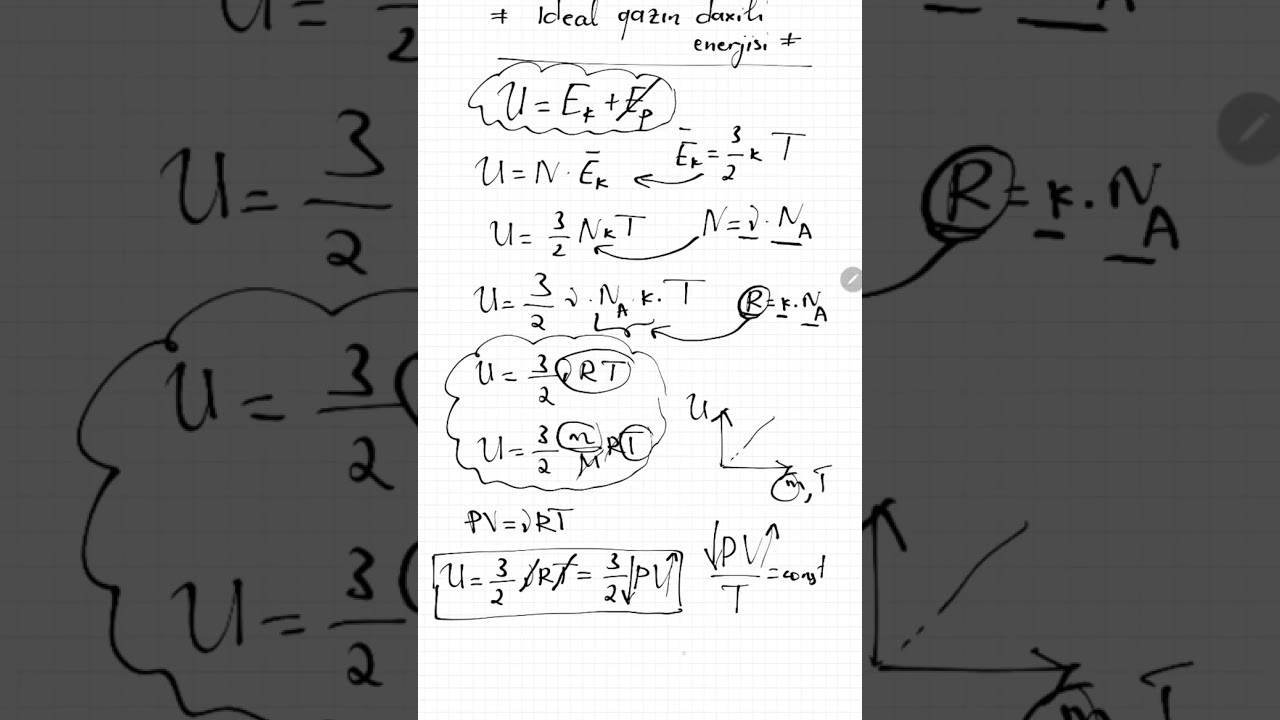 * Ideal qazın daxili
enerjisi *
U = E_k + E_p
Ē_k = 3/2 k T
U = N · Ē_k
U = 3/2 N k T
N = ν · N_A
U = 3/2 ν · N_A · k · T
R = k · N_A
U = 3/2 ν R T
U = 3/2 m/M R T
U
m, T
PV = ν R T
U = 3/2 ν R T = 3/2 ↓PV↑
↓PV↑/T = const